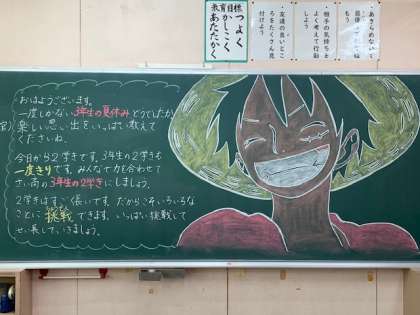 教育目標
つよく
かしこく
あたたかく
・あきらめないで
もう
・相手の気持ちを
よく考えて行動
しよう
・友達の良いとこ
ろをたくさん見
付けよう
おはようございます。
一度しかない3年生の夏休みどうでしたか
楽しい思い出をいっぱい教えて
くださいね。
今日から2学きです。3年生の2学きも
一度きりです。みんなで力を合わせて
さい高の3年生の2学きにしましょう。
2学きはすごく長いです。だからこそいろいろな
ことに挑戦できます。いっぱい挑戦して
せい長していきましょう。